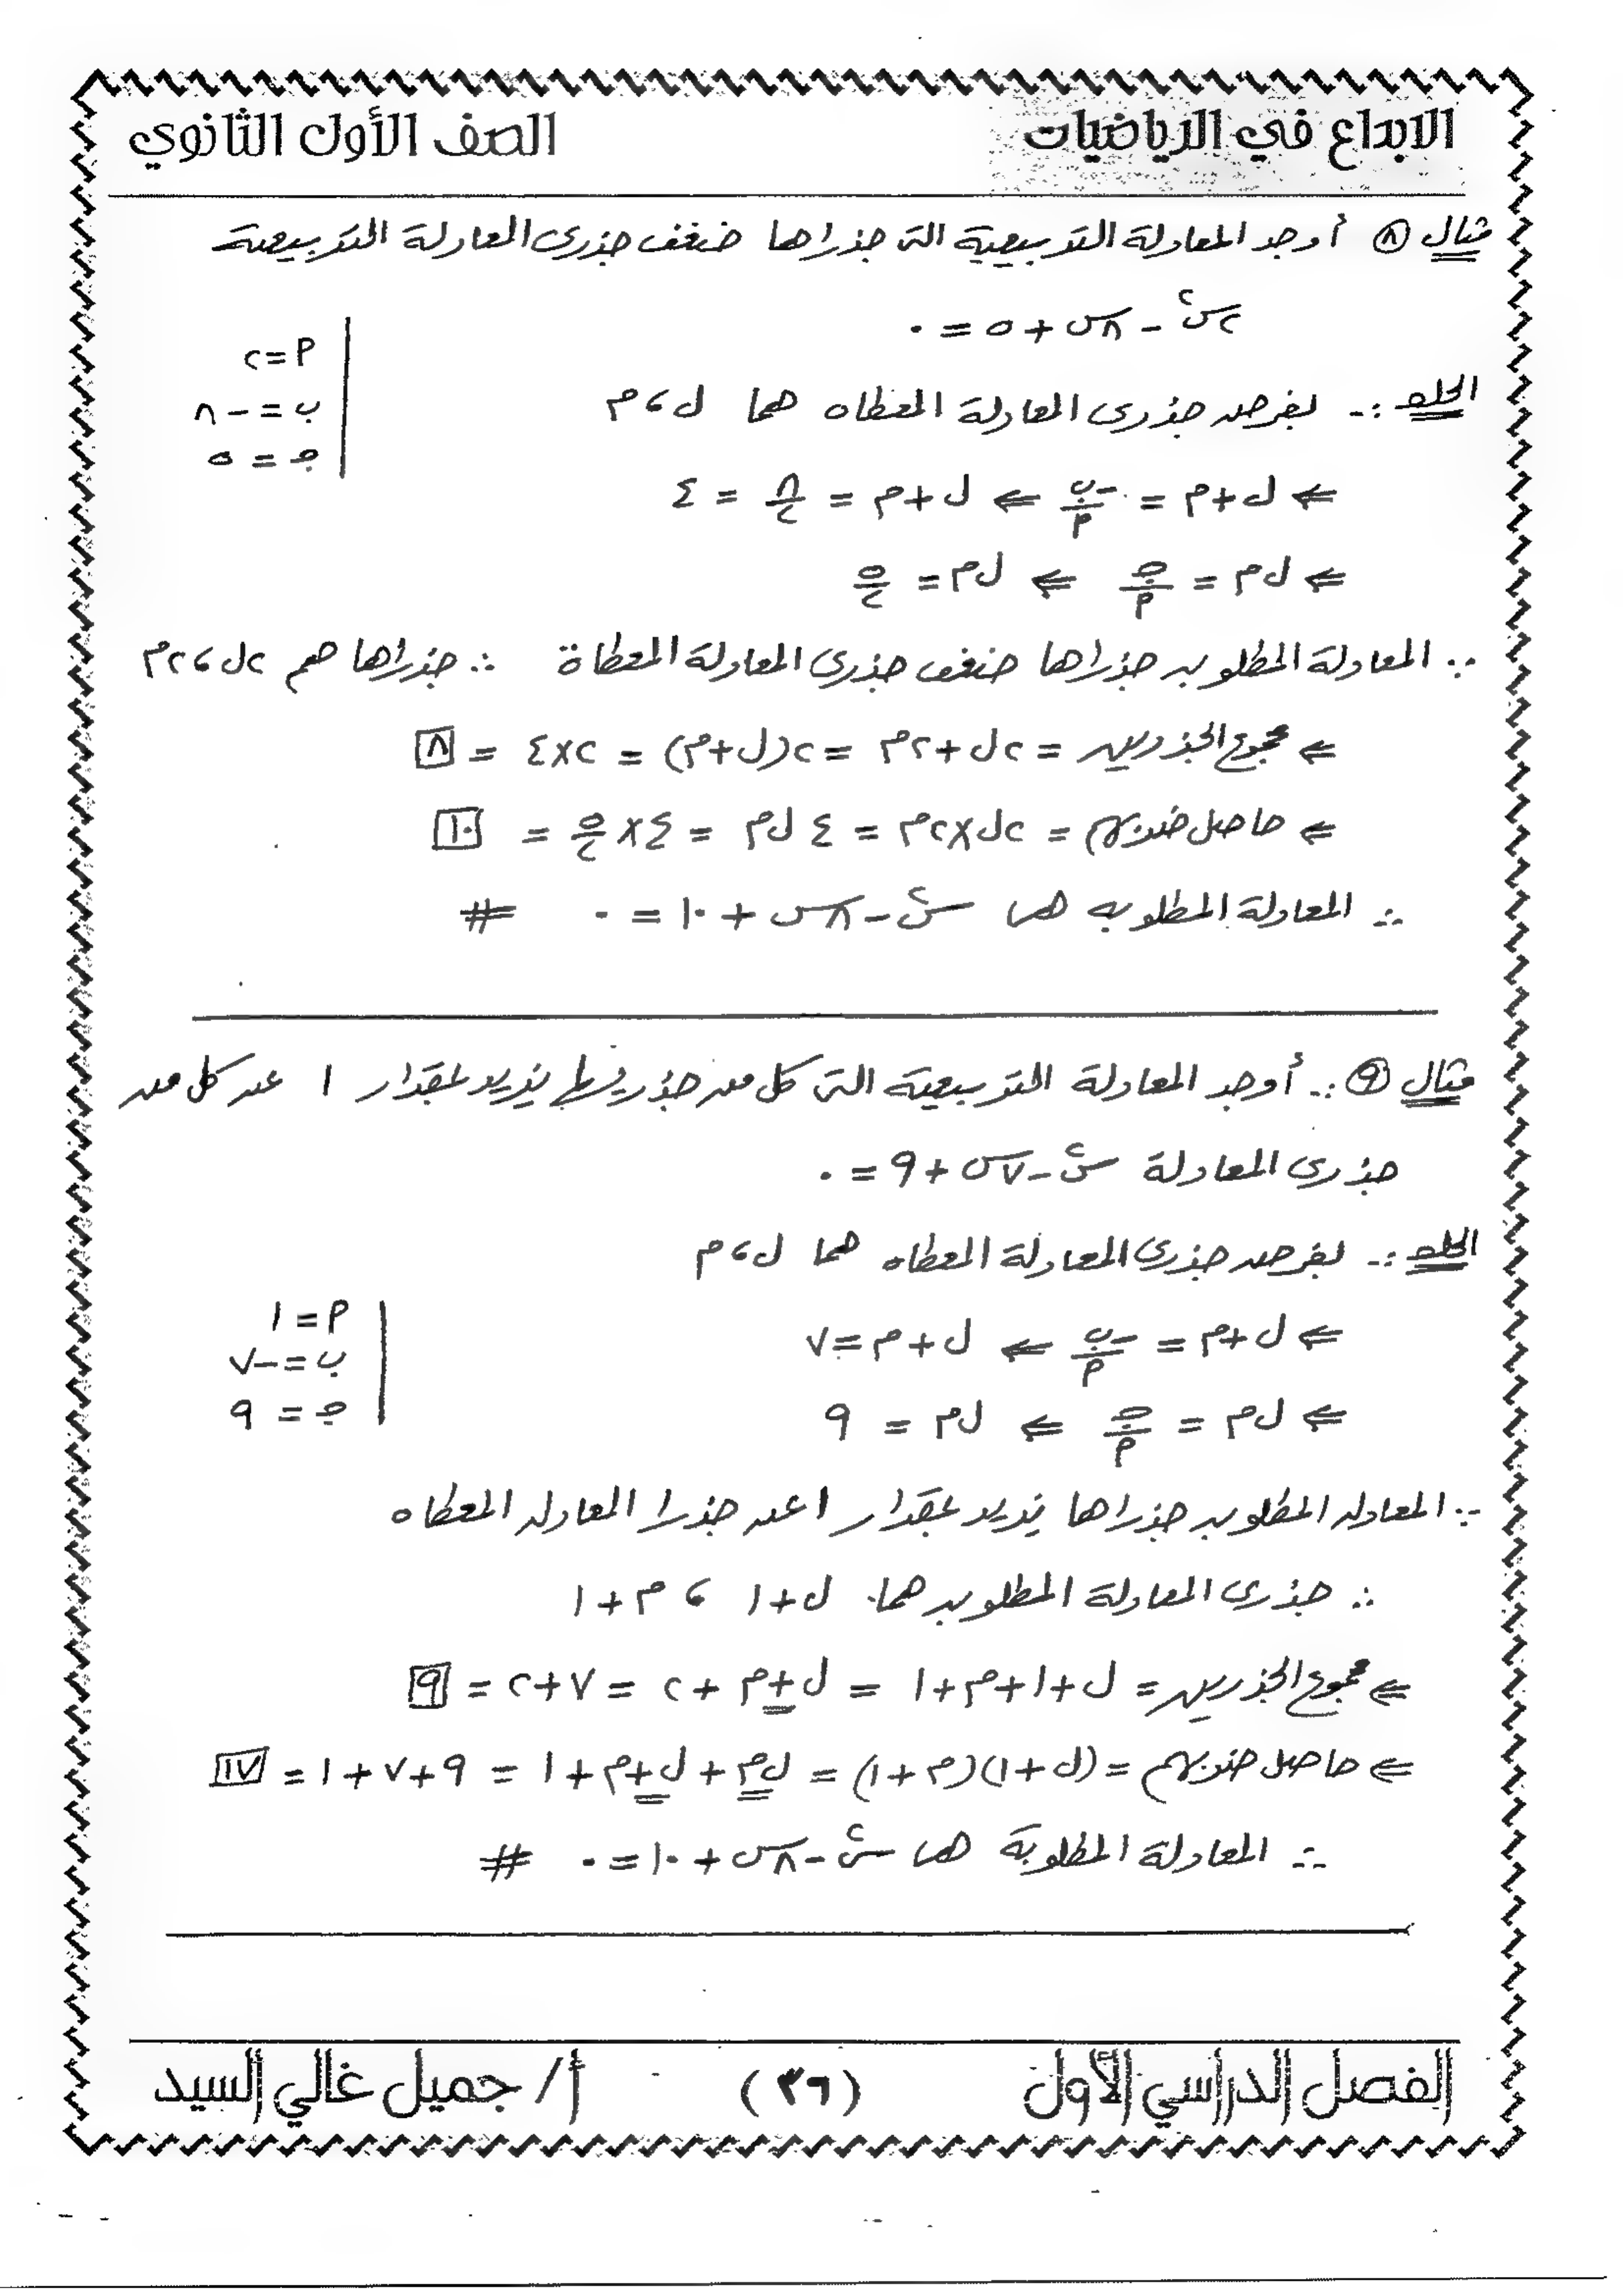 الابداع في الرياضيات
الصف الأول الثانوي
مثال ٨ أوجد المعادلة التربيعية التى جذراها ضعف جذرى المعادلة التربيعية
٢س٢ - ٨س + ٥ = ٠
أ = ٢
ب = -٨
جـ = ٥
الحل :- بفرض جذرى المعادلة المعطاه هما ل ، م
⇐ ل + م = -ب/أ ⇐ ل + م = ٨/٢ = ٤
⇐ ل م = جـ/أ ⇐ ل م = ٥/٢
∵ المعادلة المطلوبه جذراها ضعف جذرى المعادلة المعطاة ∴ جذراها هم ٢ل ، ٢م
⇐ مجموع الجذرين = ٢ل + ٢م = ٢(ل + م) = ٢×٤ = ٨
⇐ حاصل ضربهم = ٢ل × ٢م = ٤ ل م = ٤ × ٥/٢ = ١٠
∴ المعادلة المطلوبه هى س٢ - ٨س + ١٠ = ٠ #
مثال ٩ :- أوجد المعادلة التربيعية التى كل من جذريها يزيد بمقدار ١ عن كل من
جذرى المعادلة س٢ - ٧س + ٩ = ٠
الحل :- بفرض جذرى المعادلة المعطاه هما ل ، م
أ = ١
ب = -٧
جـ = ٩
⇐ ل + م = -ب/أ ⇐ ل + م = ٧
⇐ ل م = جـ/أ ⇐ ل م = ٩
∵ المعادله المطلوبه جذراها يزيد بمقدار ١ عن جذرا المعادله المعطاه
∴ جذرى المعادلة المطلوبه هما ل + ١ ، م + ١
⇐ مجموع الجذرين = ل + ١ + م + ١ = ل + م + ٢ = ٧ + ٢ = ٩
⇐ حاصل ضربهم = (ل + ١)(م + ١) = ل م + ل + م + ١ = ٩ + ٧ + ١ = ١٧
∴ المعادلة المطلوبة هى س٢ - ٨س + ١٠ = ٠ #
الفصل الدراسي الأول
(٣٦)
أ/ جميل غالي السيد